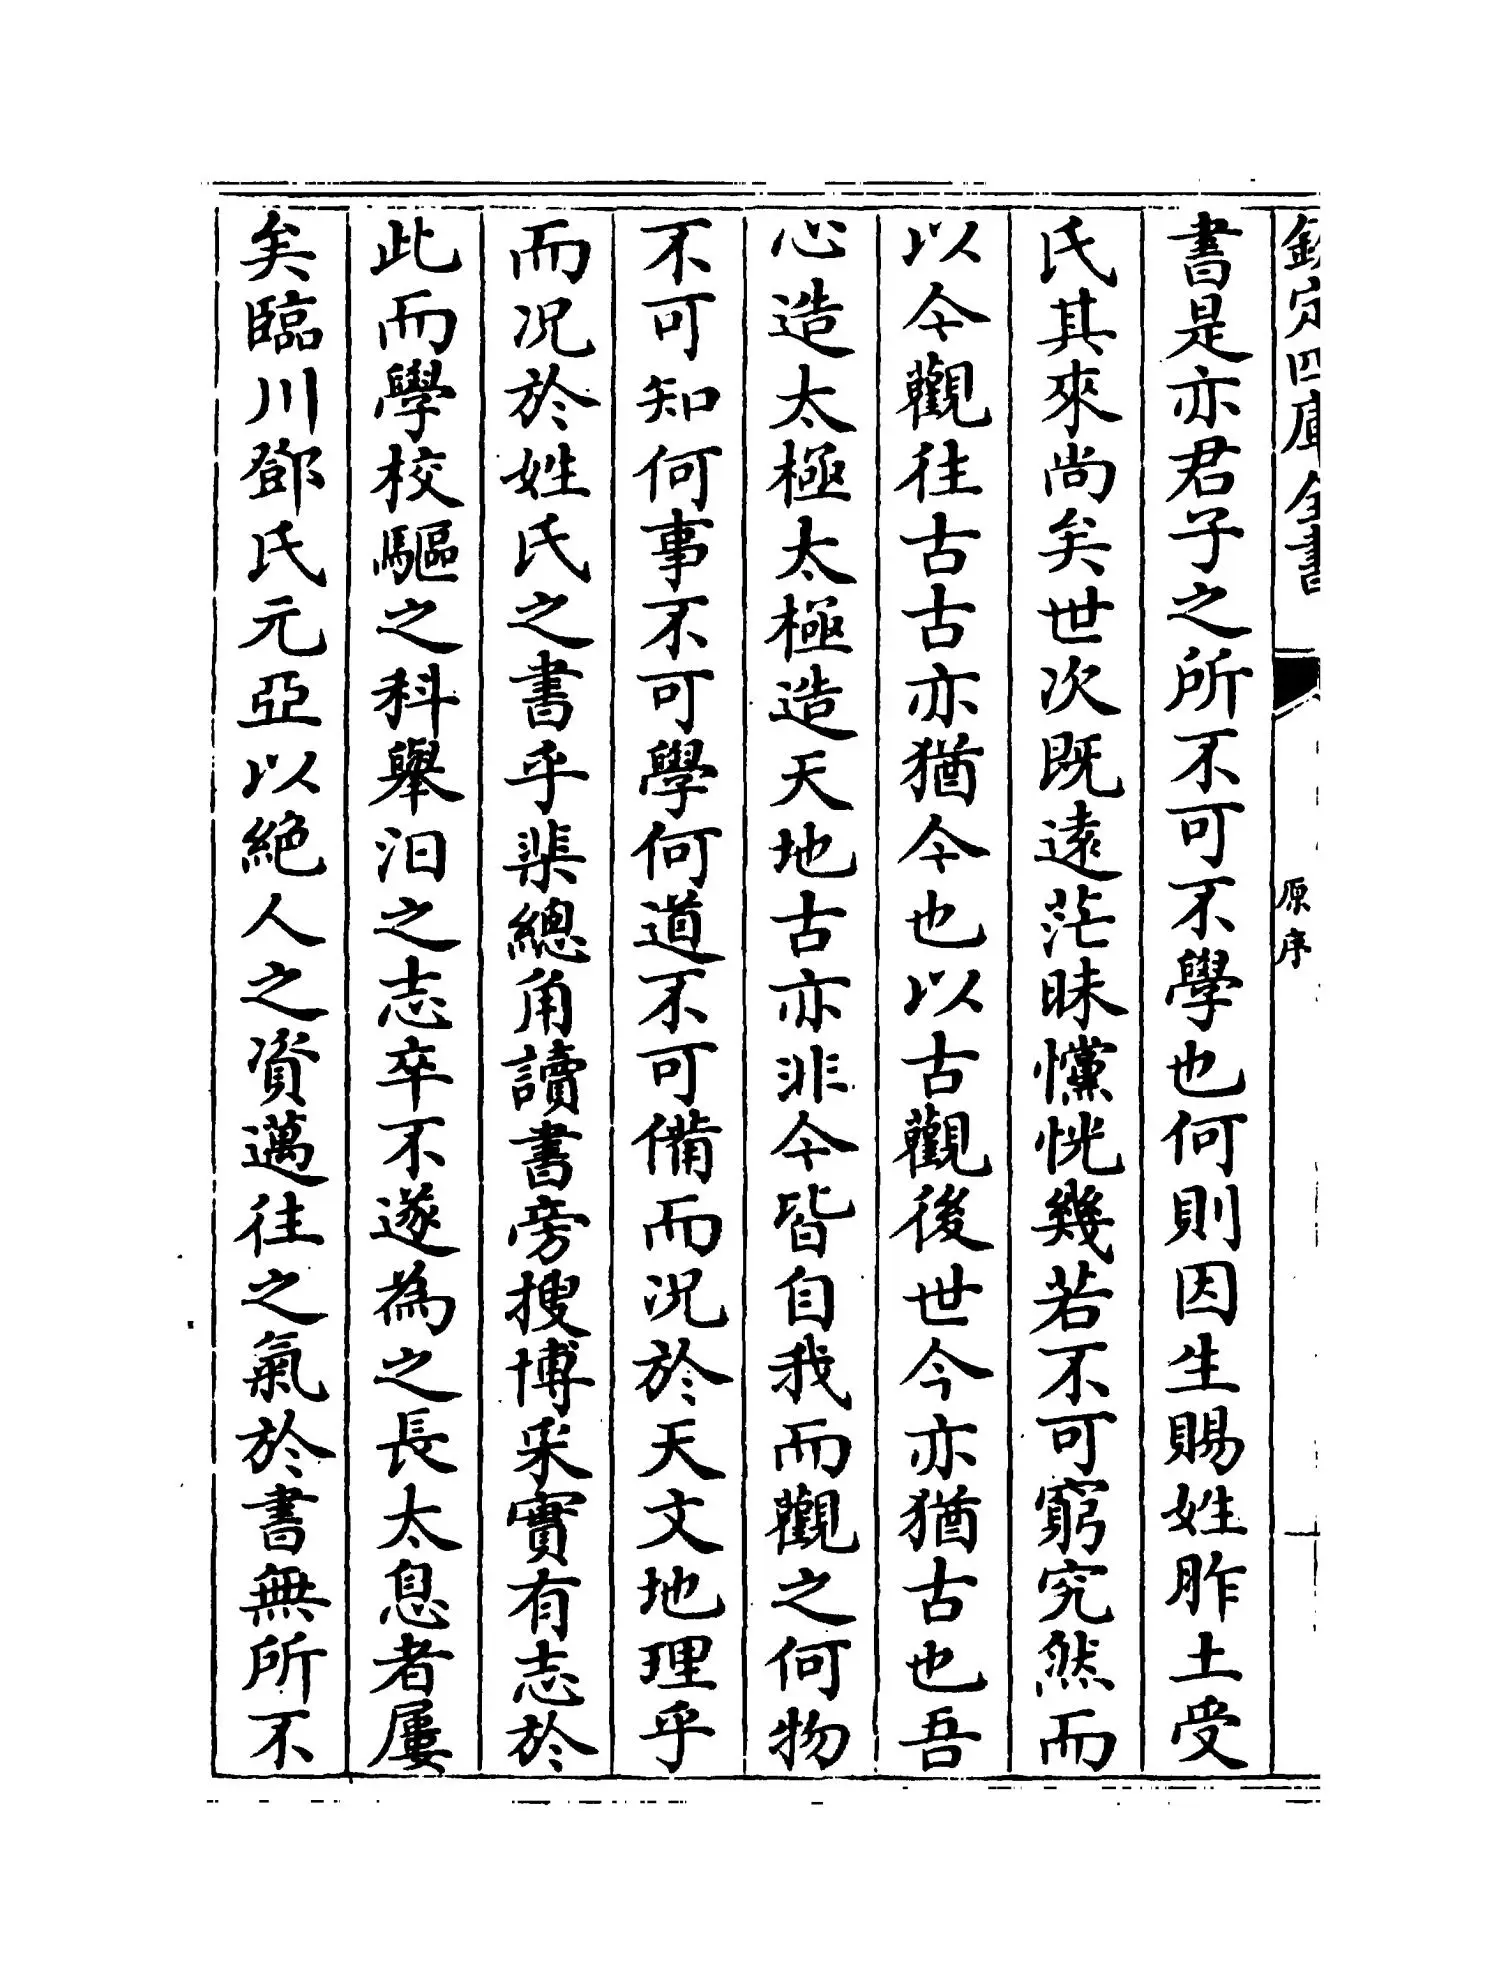 欽定四庫全書
原序
書是亦君子之所不可不學也何則因生賜姓胙土受
氏其來尚矣世次既遠茫昧戃恍幾若不可窮究然而
以今觀往古古亦猶今也以古觀後世今亦猶古也吾
心造太極太極造天地古亦非今皆自我而觀之何物
不可知何事不可學何道不可備而况於天文地理乎
而况於姓氏之書乎棐總角讀書旁搜博采實有志於
此而學校驅之科舉汨之志卒不遂為之長太息者屢
矣臨川鄧氏元亞以絶人之資邁往之氣於書無所不